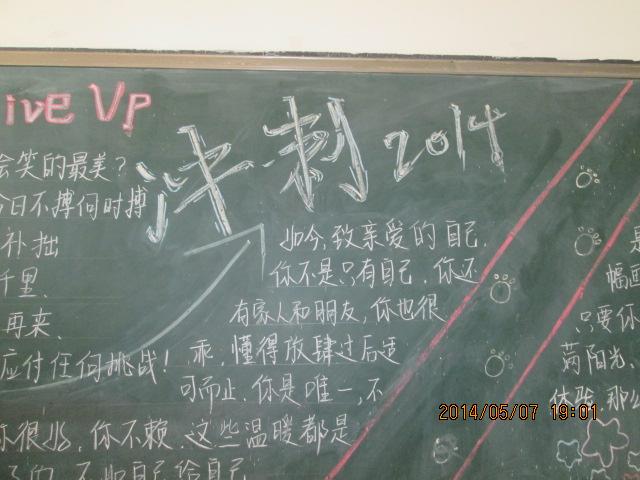 ive Up
冲刺2014
会笑的最美？
今日不搏何时搏
补拙
千里、
再来、
应付任何挑战！
如今，致亲爱的自己．
你不是只有自己．你还
有家人和朋友，你也很
乖，懂得放肆过后适
可而止．你是唯一，不
你很好，你不赖．这些温暖都是
不如自己给自己
是
幅画
只要你
荫阳光、
体验．那么
2014/05/07 19:01